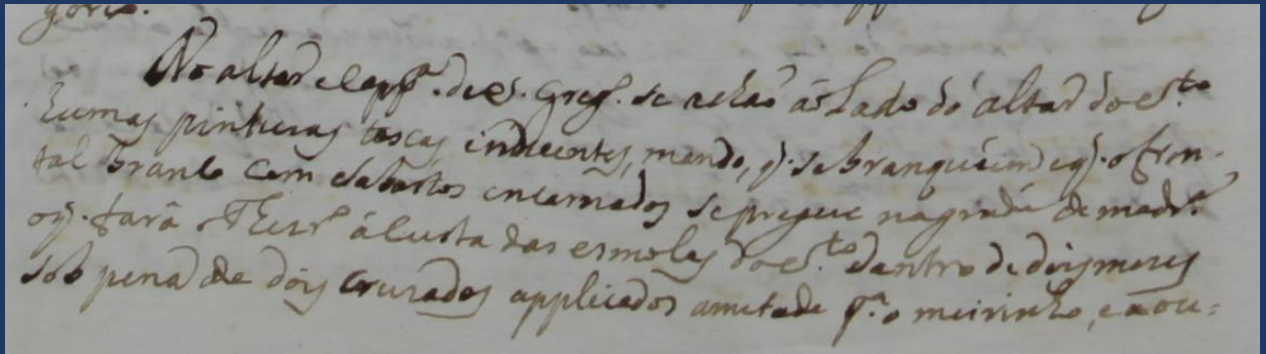 No altar e capp.ª de S. Greg.º se achaõ ás Lado do altar do S.to
humas pinturas toscas indecentes, mando, q. se branqueiem e q. o fron-
tal branco com sabastos encarnados se pregue na grade de madr.ª
o q. fará o Thezr.º á custa das esmolas do S.to dentro de dois mezes
sob pena de dois cruzados applicados ametade p.ª o meirinho, e a ou-